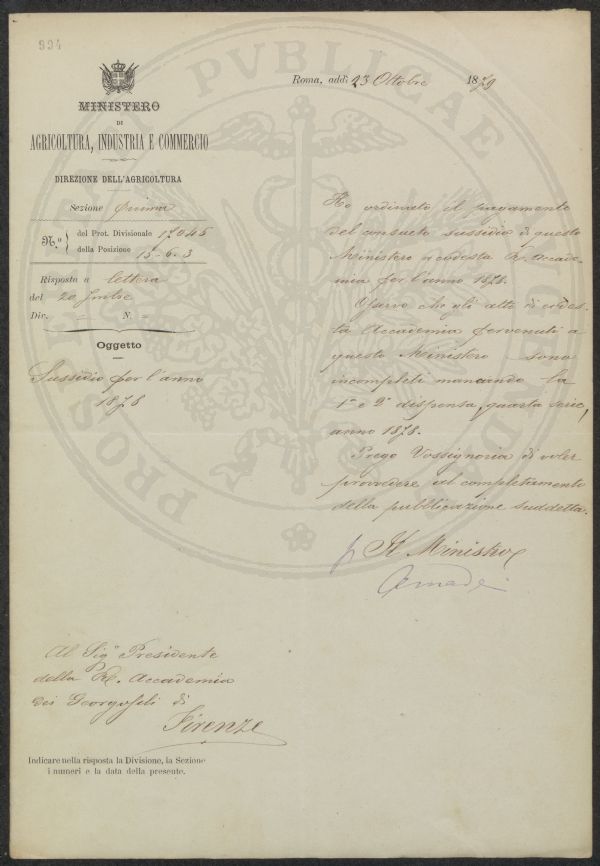 994
Roma, addì 23 Ottobre 1879
MINISTERO
DI
AGRICOLTURA, INDUSTRIA E COMMERCIO
DIREZIONE DELL'AGRICOLTURA
Sezione prima
N.º del Prot. Divisionale 17045
della Posizione 15-6-3
Risposta a lettera
del 20
Dir. = N. =
Oggetto
Sussidio per l'anno
1878
Ho ordinato il pagamento
del consueto sussidio di questo
Ministero a codesta R. Accade-
mia per l'anno 1878.
Osservo che gli atti di codes-
ta Accademia pervenuti a
questo Ministero sono
incompleti mancando la
1ª e 2ª dispensa, quarta serie,
anno 1878.
Prego Vossignoria di voler
provvedere al completamento
della pubblicazione suddetta.
p Il Ministro
Al Sigr Presidente
della R. Accademia
dei Georgofili di
Firenze
Indicare nella risposta la Divisione, la Sezione
i numeri e la data della presente.
PUBLICAE